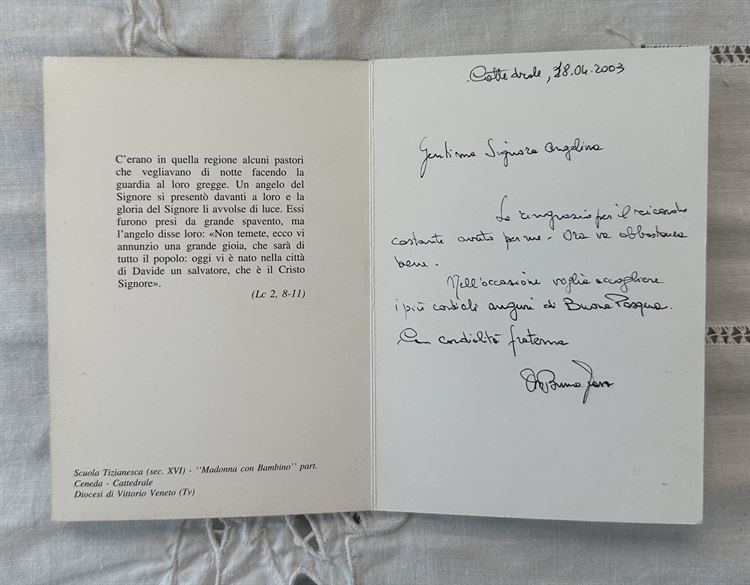 C'erano in quella regione alcuni pastori
che vegliavano di notte facendo la
guardia al loro gregge. Un angelo del
Signore si presentò davanti a loro e la
gloria del Signore li avvolse di luce. Essi
furono presi da grande spavento, ma
l'angelo disse loro: «Non temete, ecco vi
annunzio una grande gioia, che sarà di
tutto il popolo: oggi vi è nato nella città
di Davide un salvatore, che è il Cristo
Signore».
(Lc 2, 8-11)
Scuola Tizianesca (sec. XVI) - "Madonna con Bambino" part.
Ceneda - Cattedrale
Diocesi di Vittorio Veneto (Tv)
Cattedrale, 18.04.2003
Gentilma Signora Angelina
La ringrazio per il ricordo
costante avuto per me. Ora va abbastanza
bene.
Nell'occasione voglia accogliere
i più cordiali auguri di Buona Pasqua.
Con cordialità fraterna
Bruno